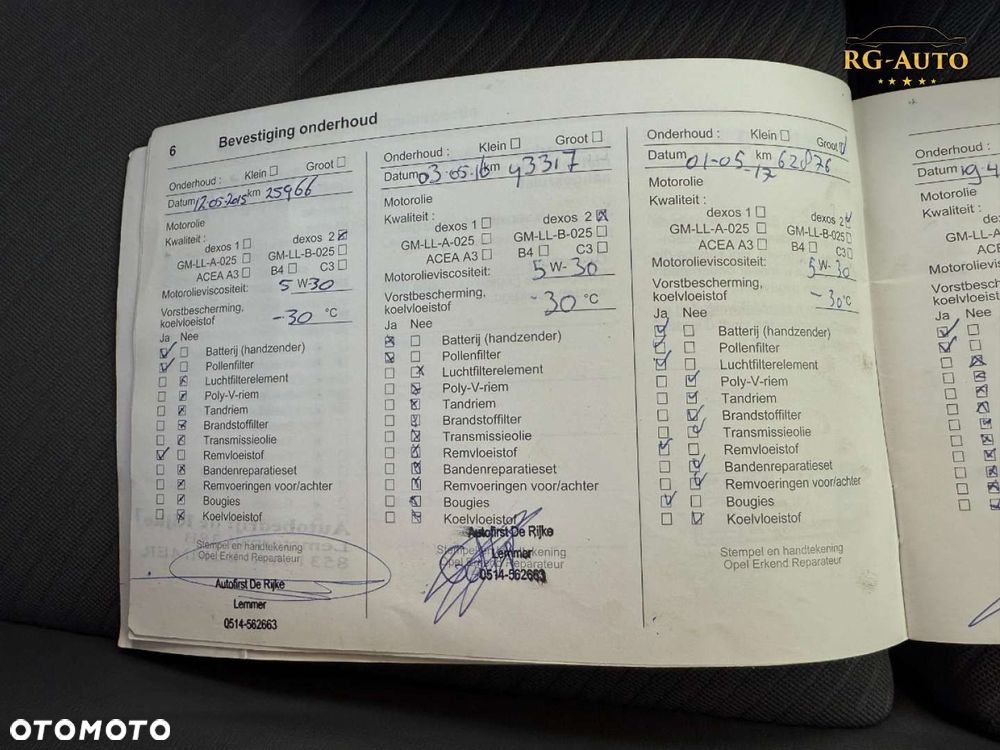 RG-AUTO
6 Bevestiging onderhoud
Onderhoud : Klein Groot
Datum 12-05-2015 km 25966
Motorolie
Kwaliteit :
dexos 1 dexos 2
GM-LL-A-025 GM-LL-B-025
ACEA A3 B4 C3
Motorolieviscositeit:
5 W-30
Vorstbescherming,
koelvloeistof -30 °C
Ja Nee
Batterij (handzender)
Pollenfilter
Luchtfilterelement
Poly-V-riem
Tandriem
Brandstoffilter
Transmissieolie
Remvloeistof
Bandenreparatieset
Remvoeringen voor/achter
Bougies
Koelvloeistof
Stempel en handtekening
Opel Erkend Reparateur
Autofirst De Rijke
Lemmer
0514-562663
Onderhoud : Klein Groot
Datum 03-05-16 km 43317
Motorolie
Kwaliteit :
dexos 1 dexos 2
GM-LL-A-025 GM-LL-B-025
ACEA A3 B4 C3
Motorolieviscositeit:
5 W-30
Vorstbescherming,
koelvloeistof -30 °C
Ja Nee
Batterij (handzender)
Pollenfilter
Luchtfilterelement
Poly-V-riem
Tandriem
Brandstoffilter
Transmissieolie
Remvloeistof
Bandenreparatieset
Remvoeringen voor/achter
Bougies
Koelvloeistof
Autofirst De Rijke
Stempel en handtekening
Lemmer
Opel Erkend Reparateur
0514-562663
Onderhoud : Klein Groot
Datum 01-05-17 km 62876
Motorolie
Kwaliteit :
dexos 1 dexos 2
GM-LL-A-025 GM-LL-B-025
ACEA A3 B4 C3
Motorolieviscositeit:
5 W-30
Vorstbescherming,
koelvloeistof -30 °C
Ja Nee
Batterij (handzender)
Pollenfilter
Luchtfilterelement
Poly-V-riem
Tandriem
Brandstoffilter
Transmissieolie
Remvloeistof
Bandenreparatieset
Remvoeringen voor/achter
Bougies
Koelvloeistof
Stempel en handtekening
Opel Erkend Reparateur
Onderhoud :
Datum 19-4
Motorolie
Kwaliteit :
GM-LL-A
ACE
Motorolievis
Vorstbesc
koelvloeist
Ja Nee
OTOMOTO